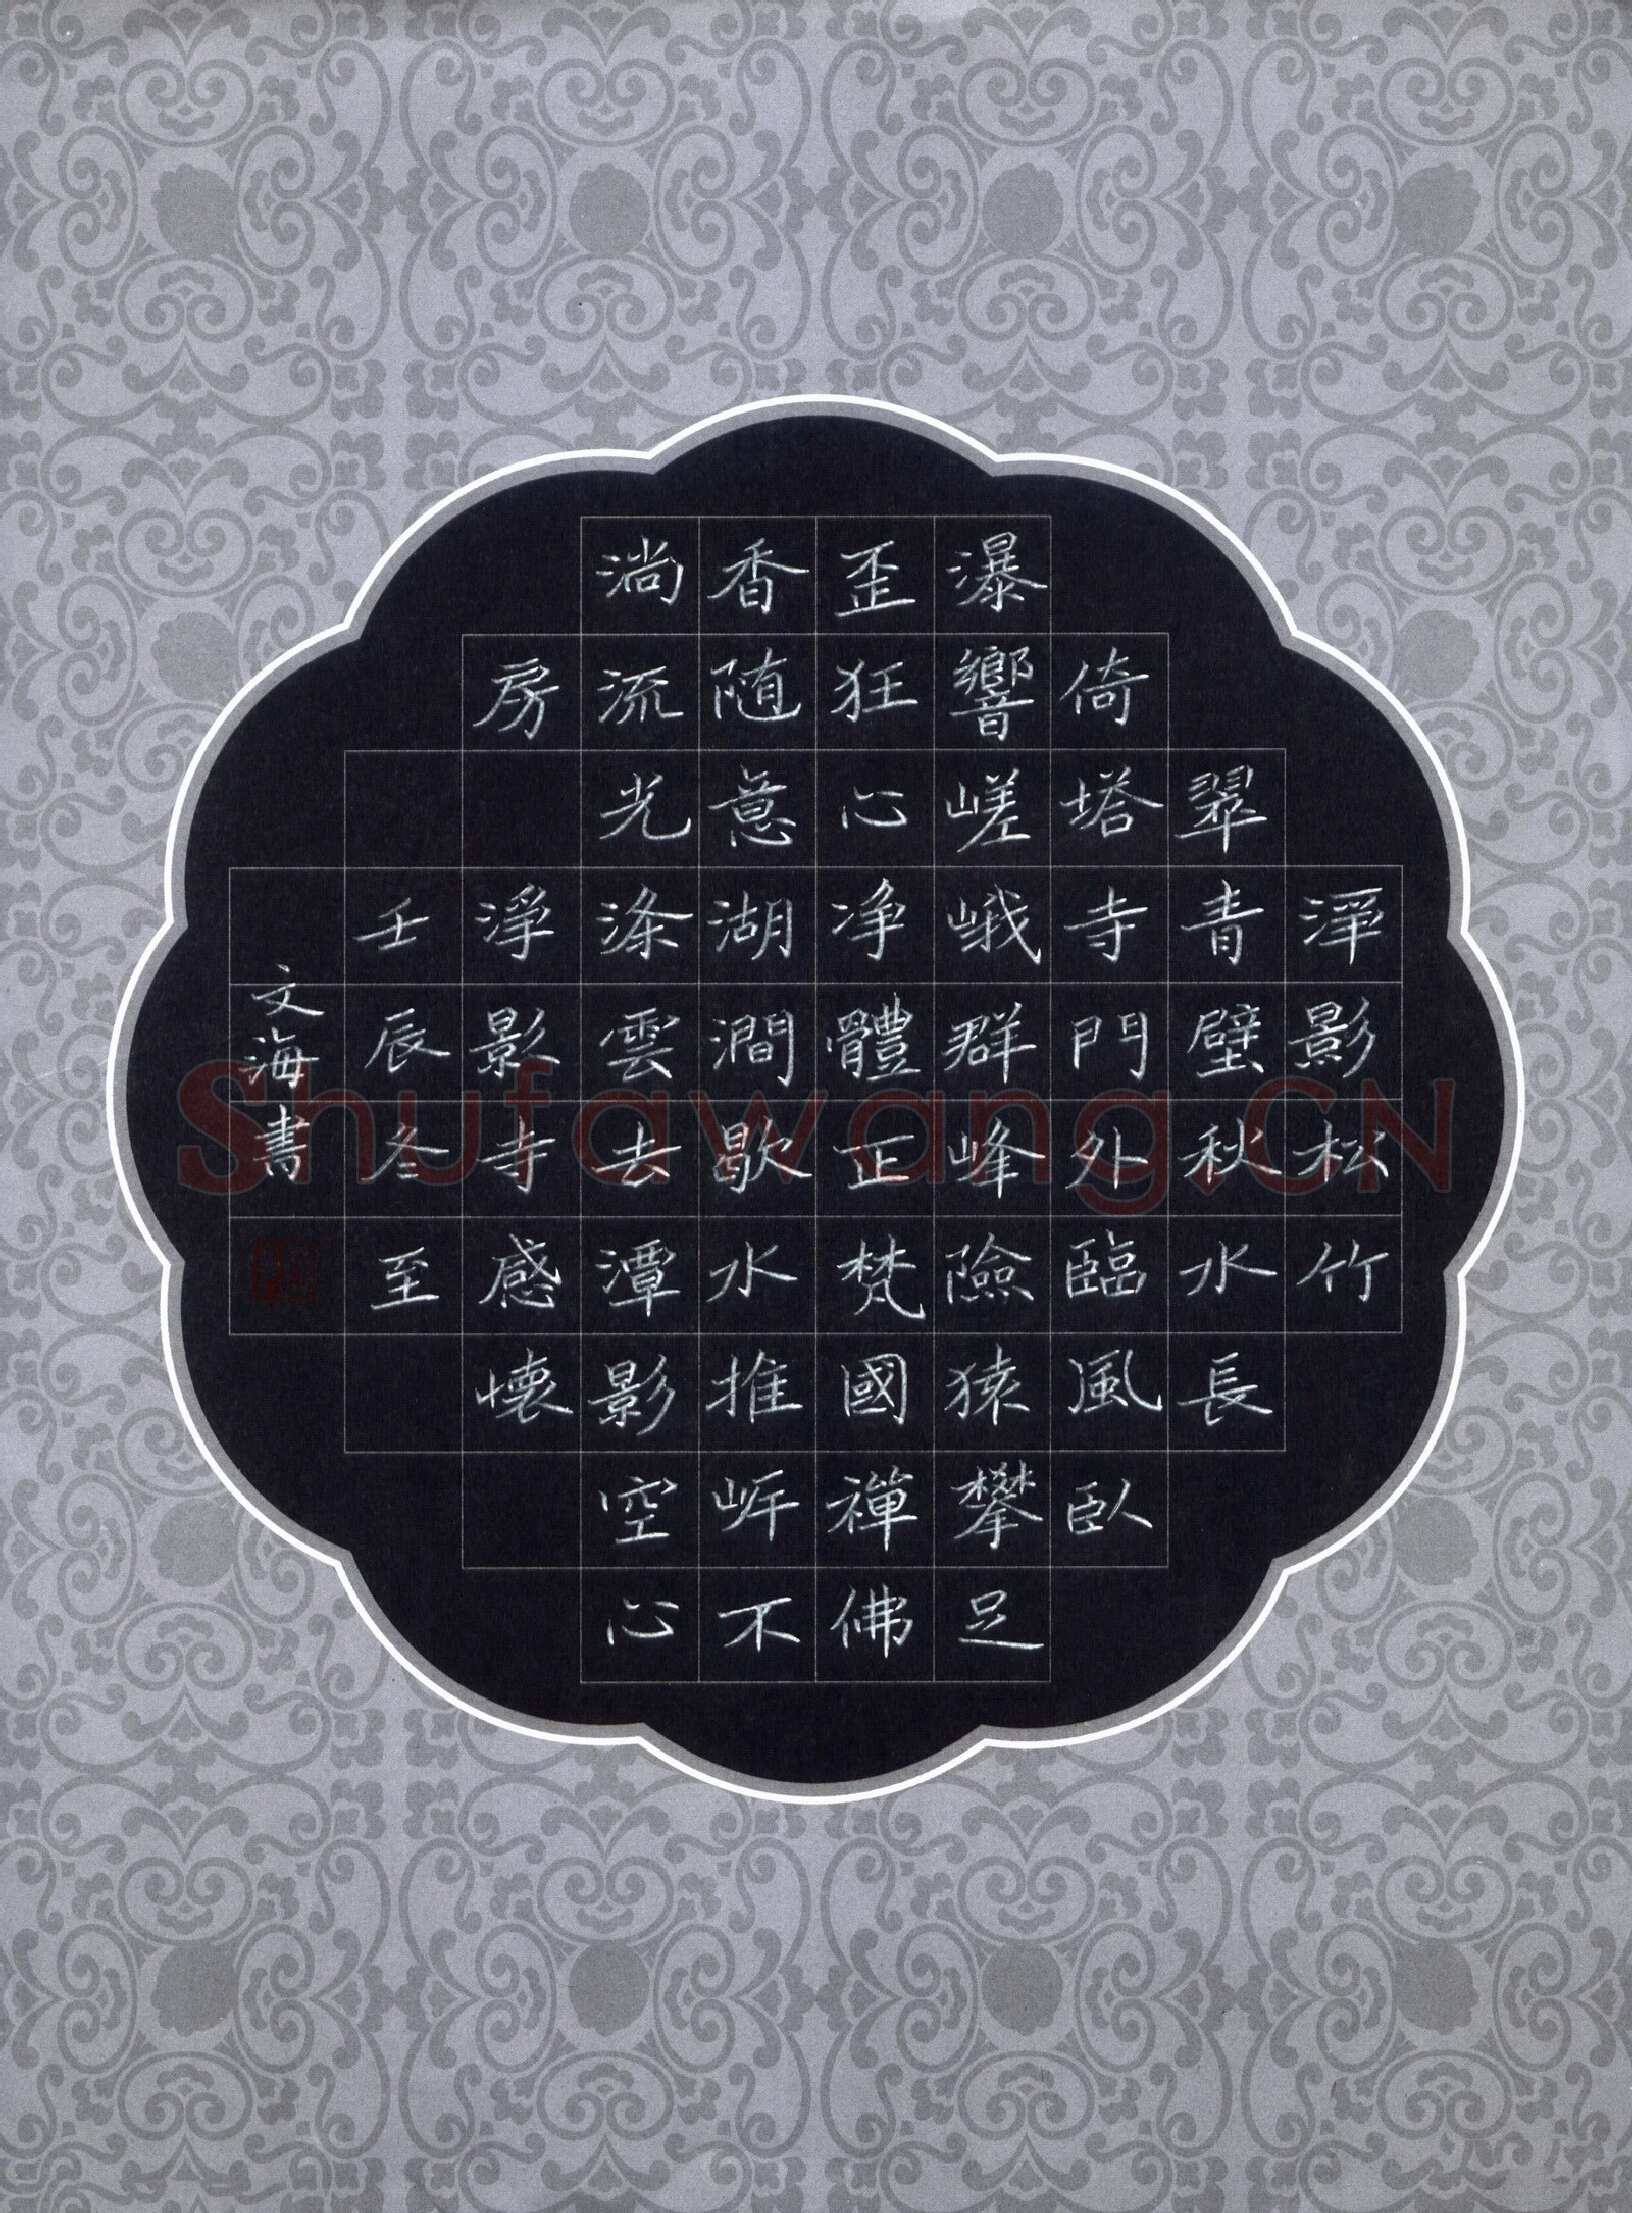 影松竹
翠青壁秋水長
倚塔寺門外臨風臥
瀑響嵯峨群峰險猿攀足
歪狂心净體正梵國禪佛
香随意湖澗歇水推岈不
淌流光涤雲去潭影空心
房 淨影寺感懷
壬辰冬至
文海書
Shufawang.CN